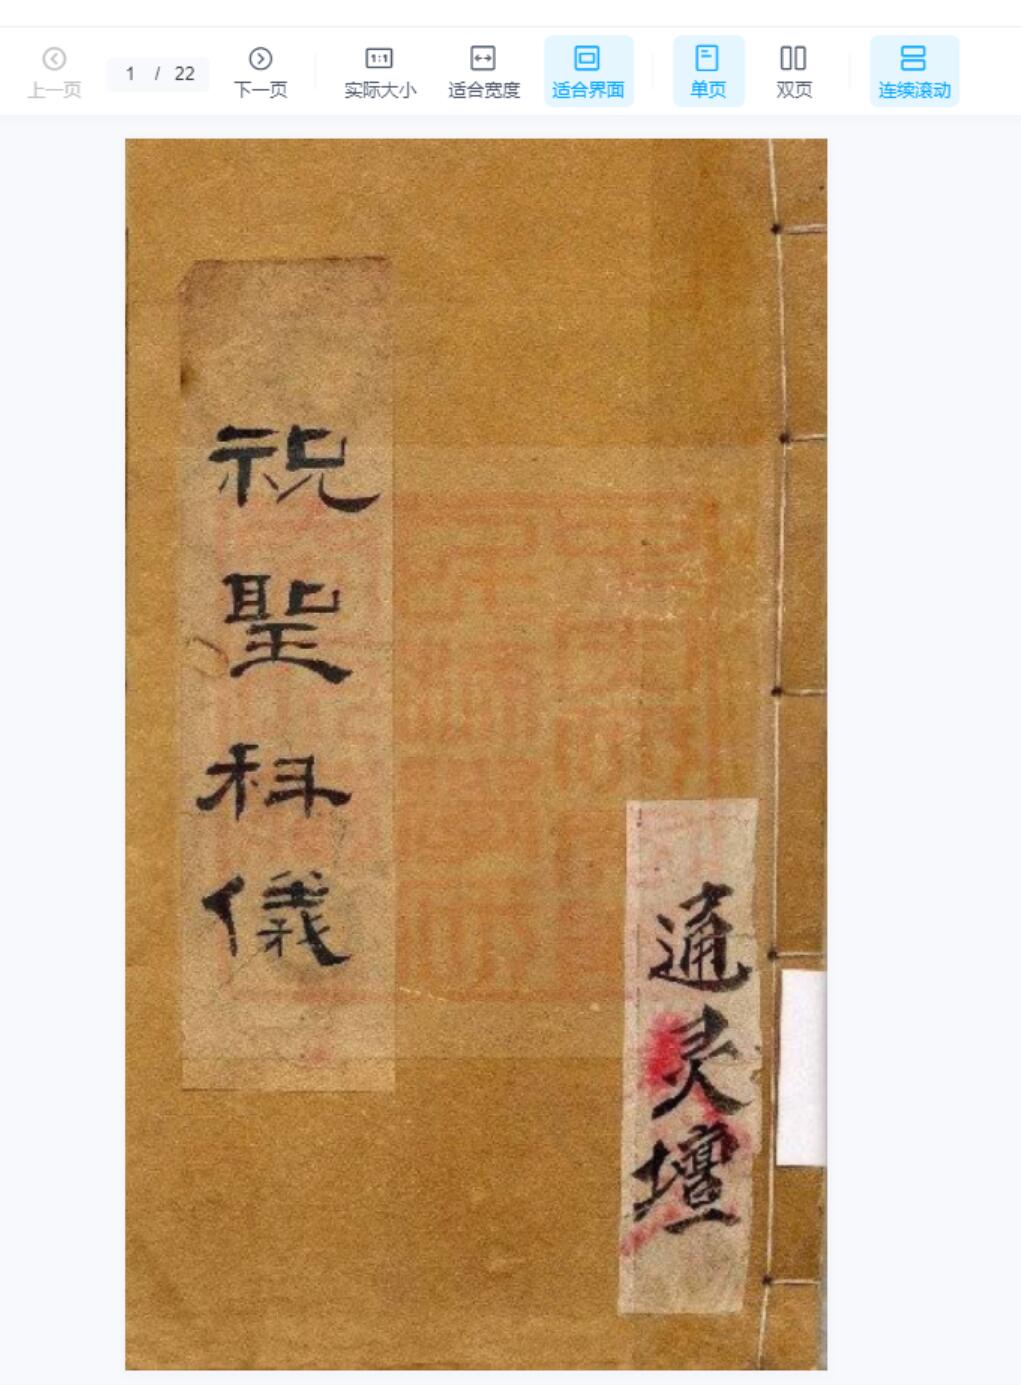 上一页
1 / 22
下一页
1:1
实际大小
适合宽度
适合界面
单页
双页
连续滚动
祝聖科儀
通灵壇